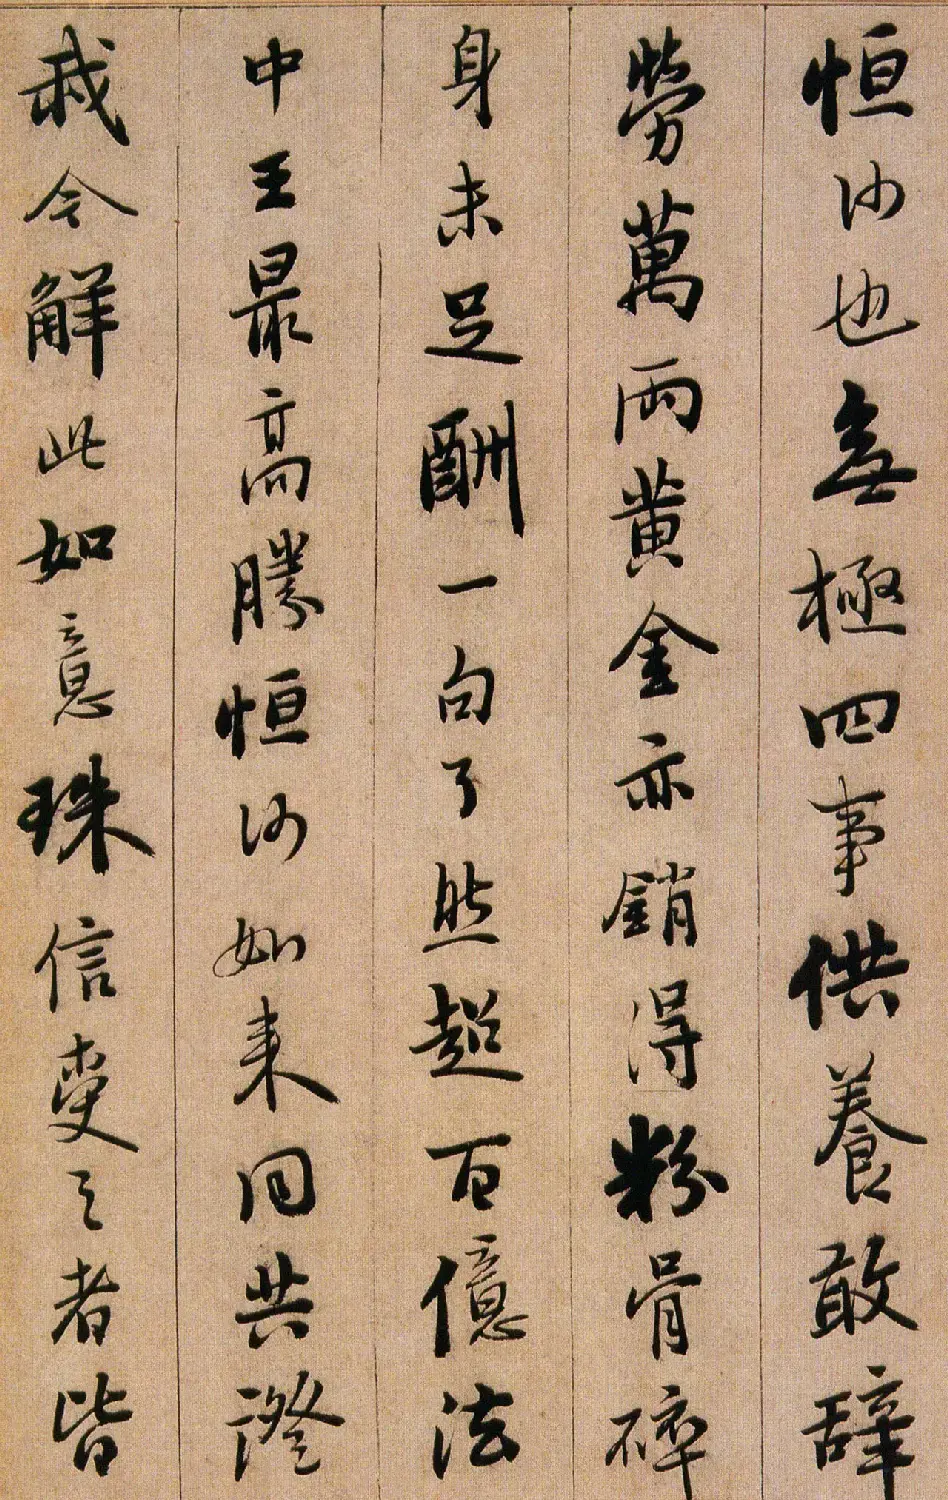 恒沙也無極四事供養敢辭
勞萬兩黄金亦銷得粉骨碎
身未足酬一句了然超百億法
中王最高勝恒沙如來同共證
我今解此如意珠信受之者皆